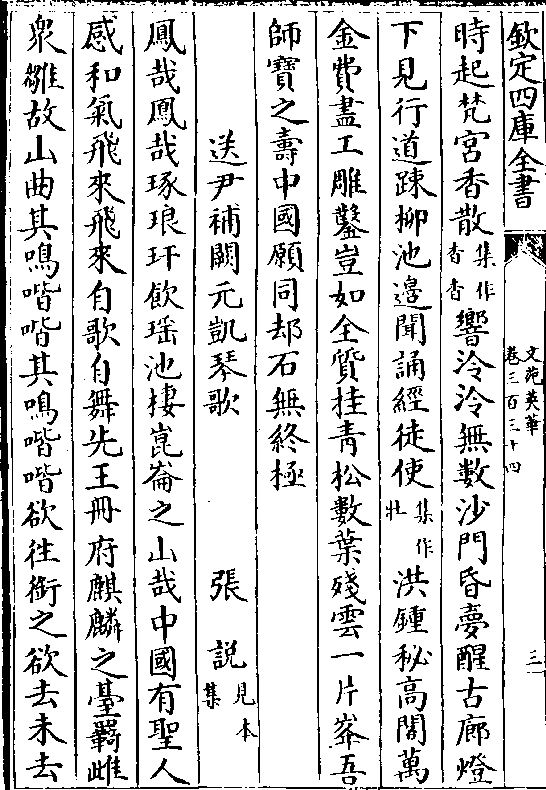 欽定四庫全書
文苑英華
卷三百三十四
三
時起梵宮香散集作杳杳響泠泠無數沙門昏夢醒古廊燈
下見行道踈柳池邊聞誦經徒使集作壯洪鍾秘高閣萬
金費盡工雕鑿豈如全質挂青松數葉殘雲一片峯吾
師寶之壽中國願同却石無終極
送尹補闕元凱琴歌
張說見本集
鳳哉鳳哉琢琅玕飲瑶池捿崑崙之山哉中國有聖人
感和氣飛來飛來自歌自舞先王冊府麒麟之臺羇雌
衆雛故山曲其鳴喈喈其鳴喈喈欲往銜之欲去未去